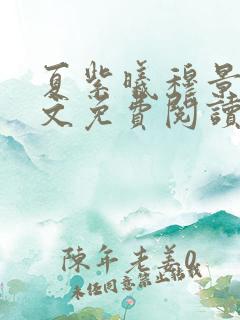 夏紫曦穆景
文免費閱讀
陳年老姜0
未経同意禁止転載